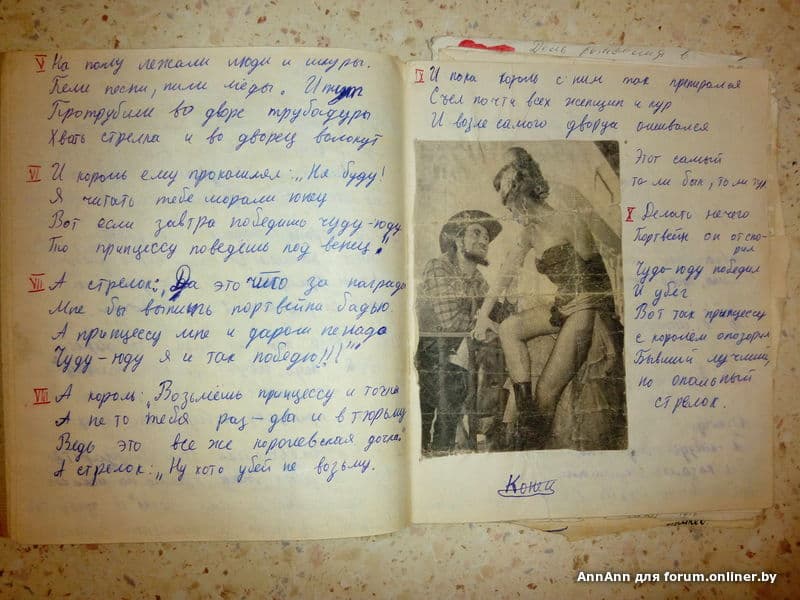 V На полу лежали люди и шкуры.
Пели песни, пили мёды. И тут
Протрубили во дворе трубадуры
Хвать стрелка и во дворец волокут
VI И король ему прокашлял: „Не буду!
Я читать тебе морали юнец
Вот если завтра победишь чуду-юду
То принцессу поведёшь под венец!"
VII А стрелок: „Да это что за награда
Мне бы выпить портвейна бадью.
А принцессу мне и даром не надо
Чуду-юду я и так победю!!!"
VIII А король: „Возьмёшь принцессу и точка
А не то тебя раз-два и в тюрьму
Ведь это все же королевская дочка.
А стрелок: „Ну хоть убей не возьму.
День рождения в
IX И пока король с ним так препирался
Съел почти всех женщин и кур
И возле самого дворца ошивался
Этот самый
то ли бык, то ли тур
X Делать нечего
Портвейн он отспо-
рил
Чудо-юдо победил
И убёг
Вот так принцессу
с королем опозорил
Бывший лучший,
но опальный
стрелок.
Конец
AnnAnn для forum.onliner.by